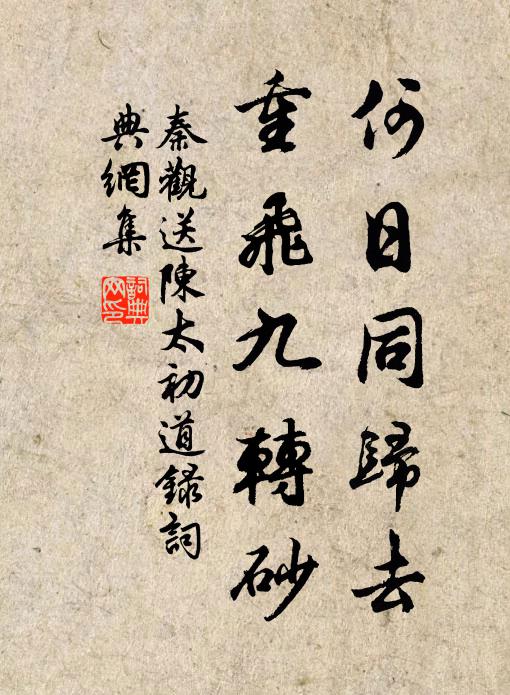 何日同歸去
重飛九轉砂
秦觀送陳太初道録詞
典網集
詞典网印